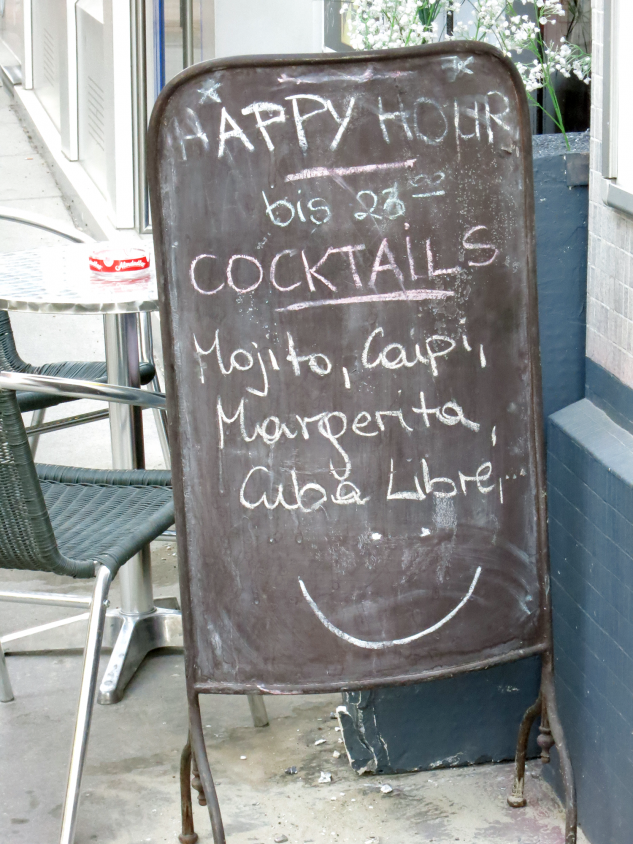 HAPPY HOUR
bis 23⁰⁰
COCKTAILS
Mojito, Caipi,
Margerita,
Cuba Libre,...